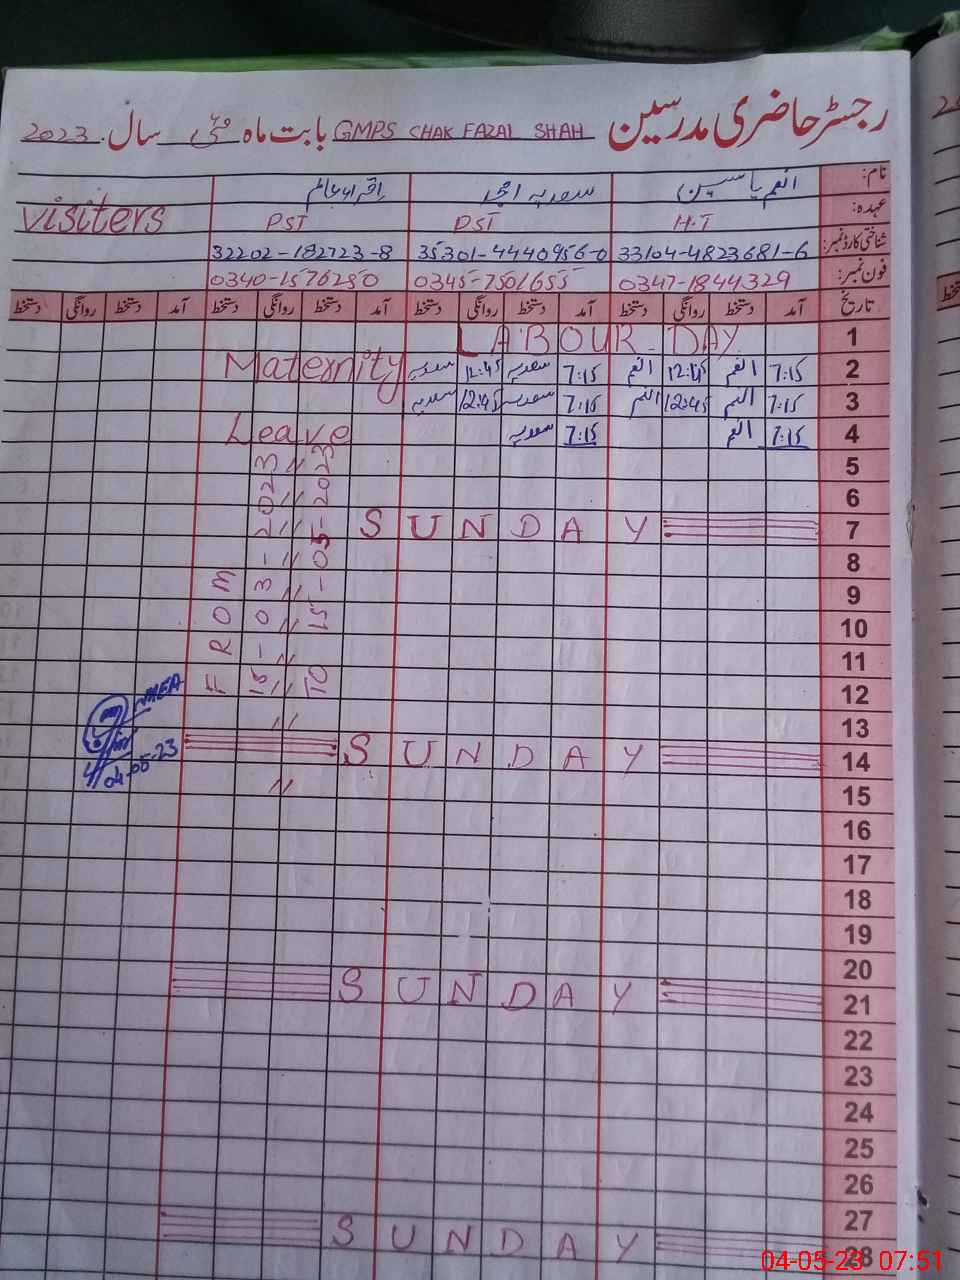 رجسٹر حاضری مدرسین GMPS CHAK FAZAL SHAH بابت ماہ مئی سال 2023
نام: انعم یاسین سعدیہ امجد
عہدہ: H.T PST PST visiters
شناختی کارڈ نمبر: 33104-4823681-6 35301-4440956-0 32202-182723-8
فون نمبر: 0347-1844329 0345-7501655 0340-1576250
تاریخ آمد دستخط روانگی دستخط آمد دستخط روانگی دستخط آمد دستخط روانگی دستخط آمد دستخط روانگی دستخط
1 LABOUR DAY
2 7:15 انعم 12:45 انعم 7:15 سعدیہ 12:45 سعدیہ Maternity
3 7:15 انعم 12:45 انعم 7:15 سعدیہ 12:45 سعدیہ
4 7:15 انعم 7:15 سعدیہ Leave
FROM
15-03-2023
TO 15-05-2023
5
6
7 SUNDAY
8
9
10
11
12
MEA
04-05-23
13
14 SUNDAY
15
16
17
18
19
20
21 SUNDAY
22
23
24
25
26
27
28 SUNDAY
04-05-23 07:51